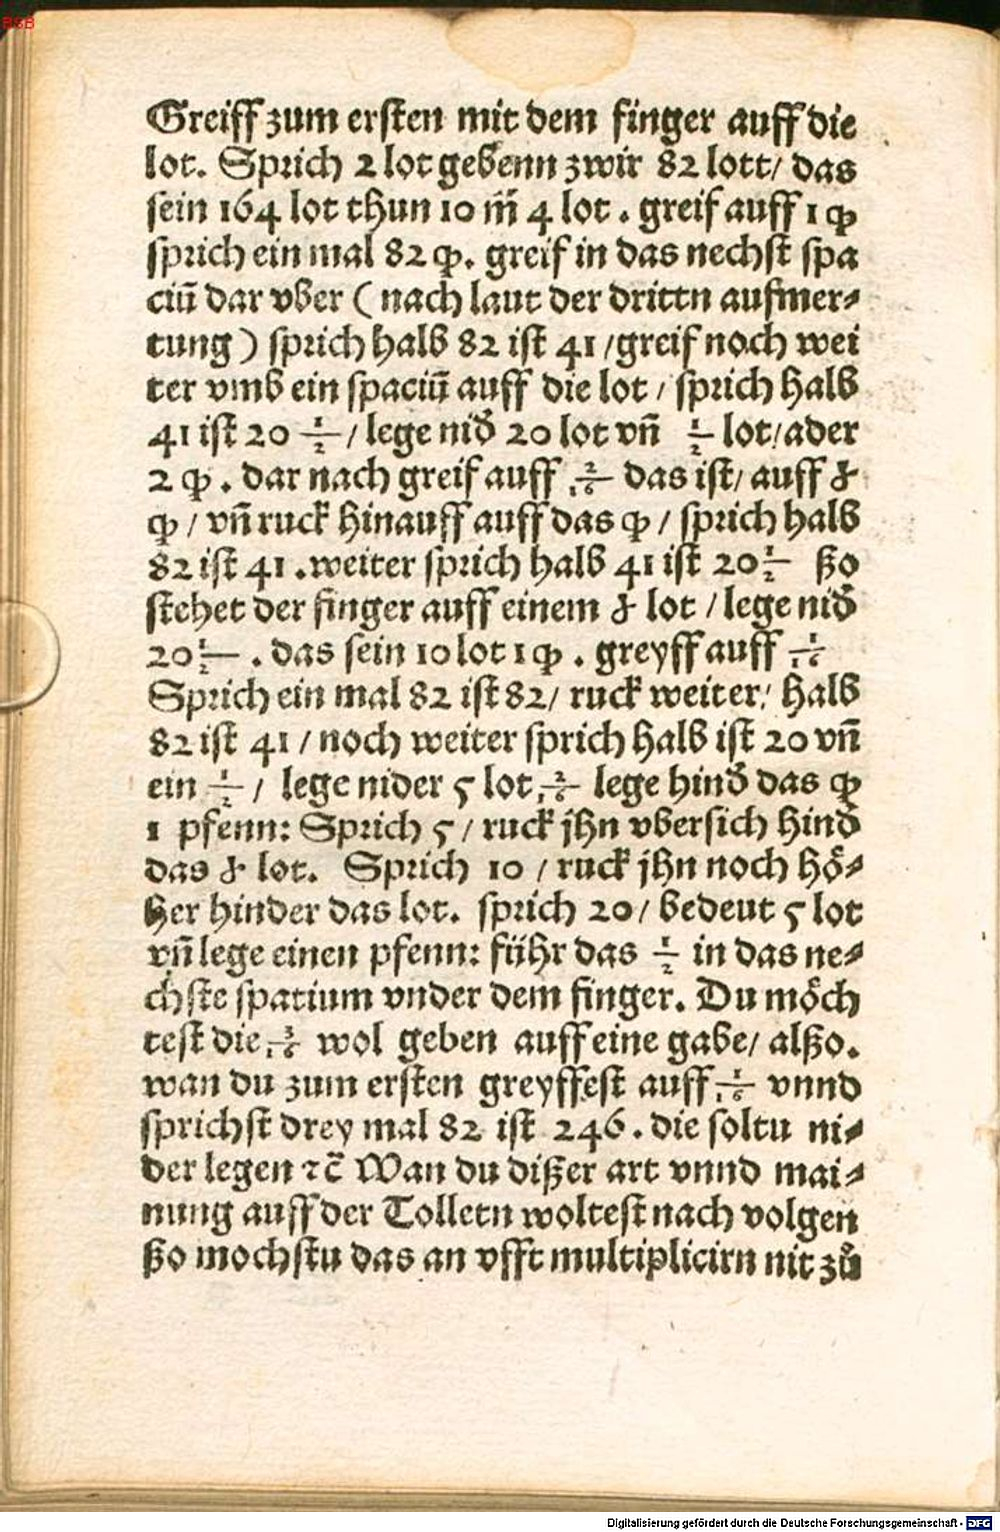 BSB
Greiff zum ersten mit dem finger auff die
lot. Sprich 2 lot gebenn zwir 82 lott/ das
sein 164 lot thun 10 m̃ 4 lot . greif auff 1 qp
sprich ein mal 82 qp. greif in das nechst spa
ciū dar vber ( nach laut der drittn aufmer⸗
tung ) sprich halb 82 ist 41 /greif noch wei
ter vmb ein spaciū auff die lot / sprich halb
41 ist 20 1/2 / lege nid̕ 20 lot vñ 1/2 lot/ader
2 qp . dar nach greif auff 2/16 das ist/ auff ꝸ
qp / vñ ruck hinauff auff das qp / sprich halb
82 ist 41 .weiter sprich halb 41 ist 20 1/2 ßo
stehet der finger auff einem ꝸ lot / lege nid̕
20 1/2 . das sein 10 lot 1 qp . greyff auff 1/16
Sprich ein mal 82 ist 82/ ruck weiter/ halb
82 ist 41 / noch weiter sprich halb ist 20 vñ
ein 1/2 / lege nider 5 lot 2/16 lege hind̕ das qp
1 pfenn: Sprich 5 / ruck jhn vbersich hind̕
das ꝸ lot. Sprich 10 / ruck jhn noch hoͤ⸗
her hinder das lot. sprich 20/ bedeut 5 lot
vñ lege einen pfenn: fuͤhr das 1/2 in das ne⸗
chste spatium vnder dem finger. Du moͤch
test die 3/16 wol geben auff eine gabe/ alßo.
wan du zum ersten greyffest auff 1/16 vnnd
sprichst drey mal 82 ist 246 . die soltu ni⸗
der legen ⁊c̃ Wan du dißer art vnnd mai⸗
nung auff der Tolletn woltest nach volgen
ßo mochstu das an vfft multiplicirn nit zů
Digitalisierung gefördert durch die Deutsche Forschungsgemeinschaft - DFG